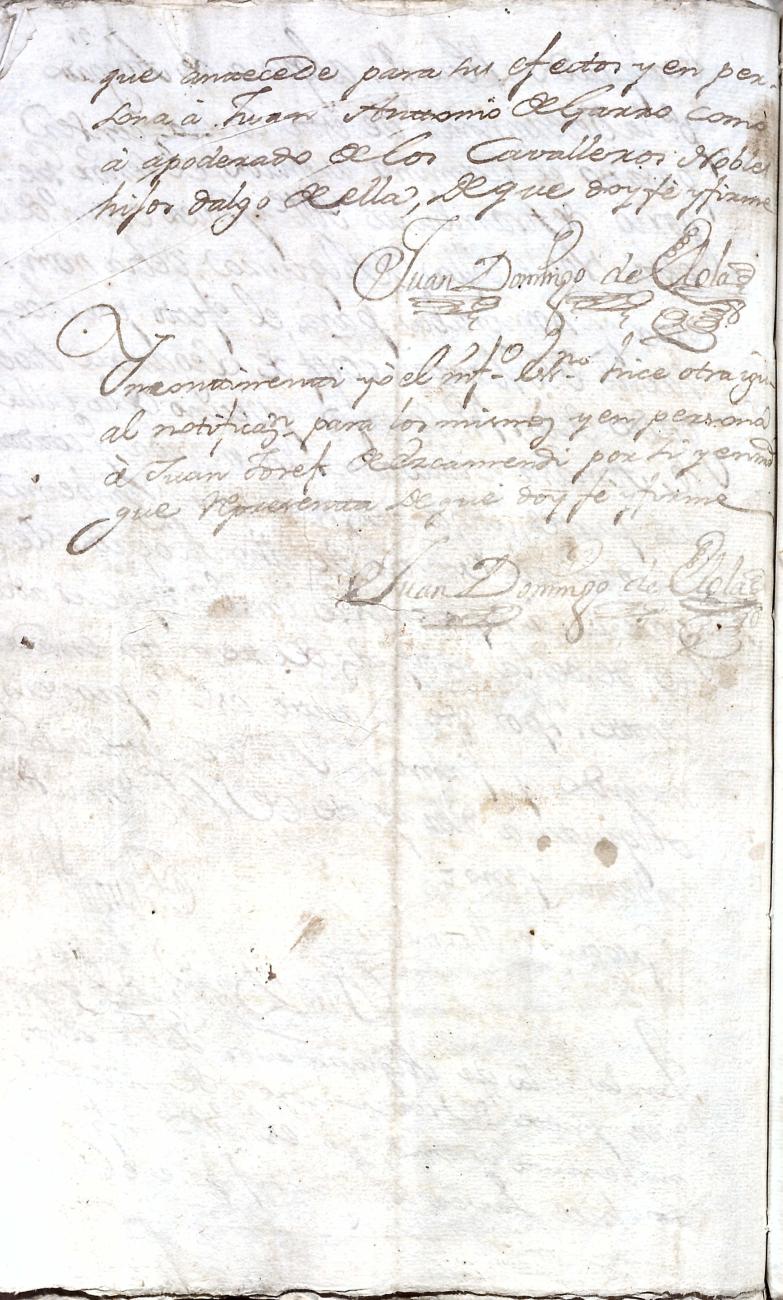 que antecede para sus efectos y en per-
sona à Juan Antonio de Garro como
à apoderado de los Cavalleros Nobles
hijos dalgo de ella, de que doy fe y firme
Juan Domingo de
Yncontinenti yo el infº. esnº. hice otra igu
al notificazn. para los mismos y en persona
à Juan Josef de Ezcamendi por si y en nre
que representa de que doy fe y firme
Juan Domingo de